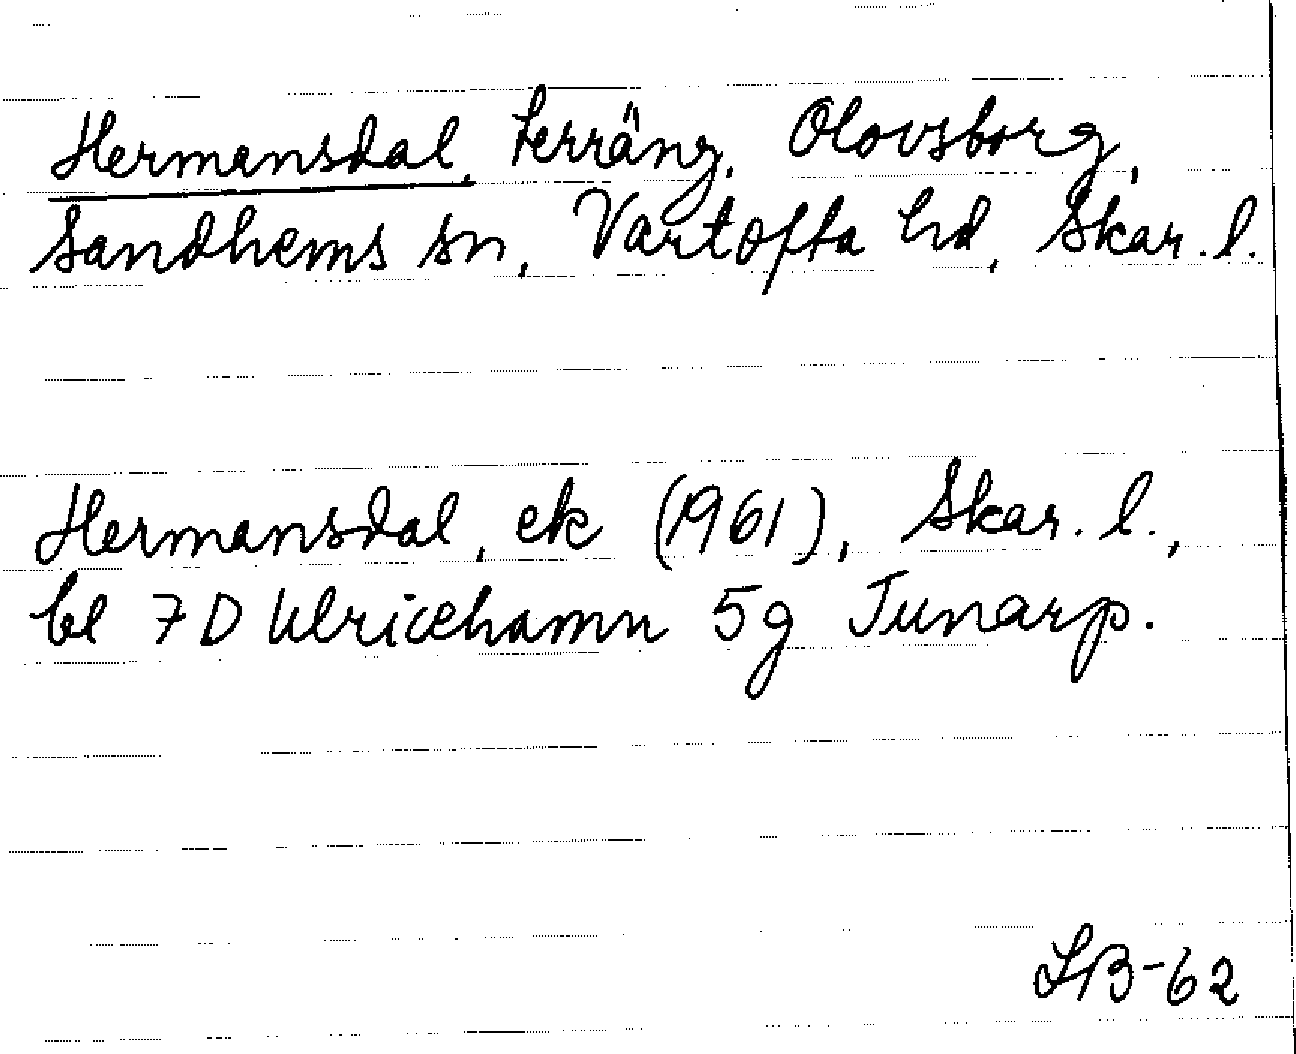 Hermansdal, terräng, Olovsborg,
Sandhems sn, Vartofta hd, Skar. l.
Hermansdal, ek (1961), Skar. l.,
bl 7D Ulricehamn 5g Junarp.
LB-62